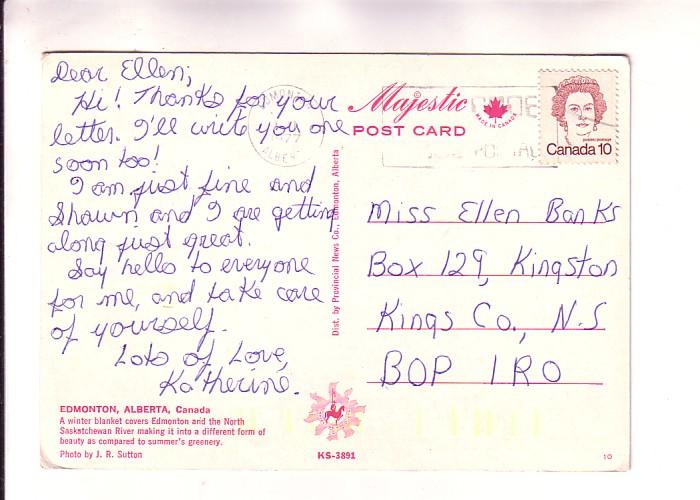 Dear Ellen;
Hi! Thanks for your
letter. I'll write you one
soon too!
I am just fine and
Shawn and I are getting
along just great.
Say hello to everyone
for me, and take care
of yourself.
Lots of Love,
Katherine.
EDMONTON, ALBERTA, Canada
A winter blanket covers Edmonton and the North
Saskatchewan River making it into a different form of
beauty as compared to summer's greenery.
Photo by J. R. Sutton
Dist. by Provincial News Co., Edmonton, Alberta
KS-3891
Majestic
MADE IN CANADA
POST CARD
EDMONTON
ALBERTA
postes postage
Canada 10
Miss Ellen Banks
Box 129, Kingston
Kings Co., N.S
BOP 1RO
10